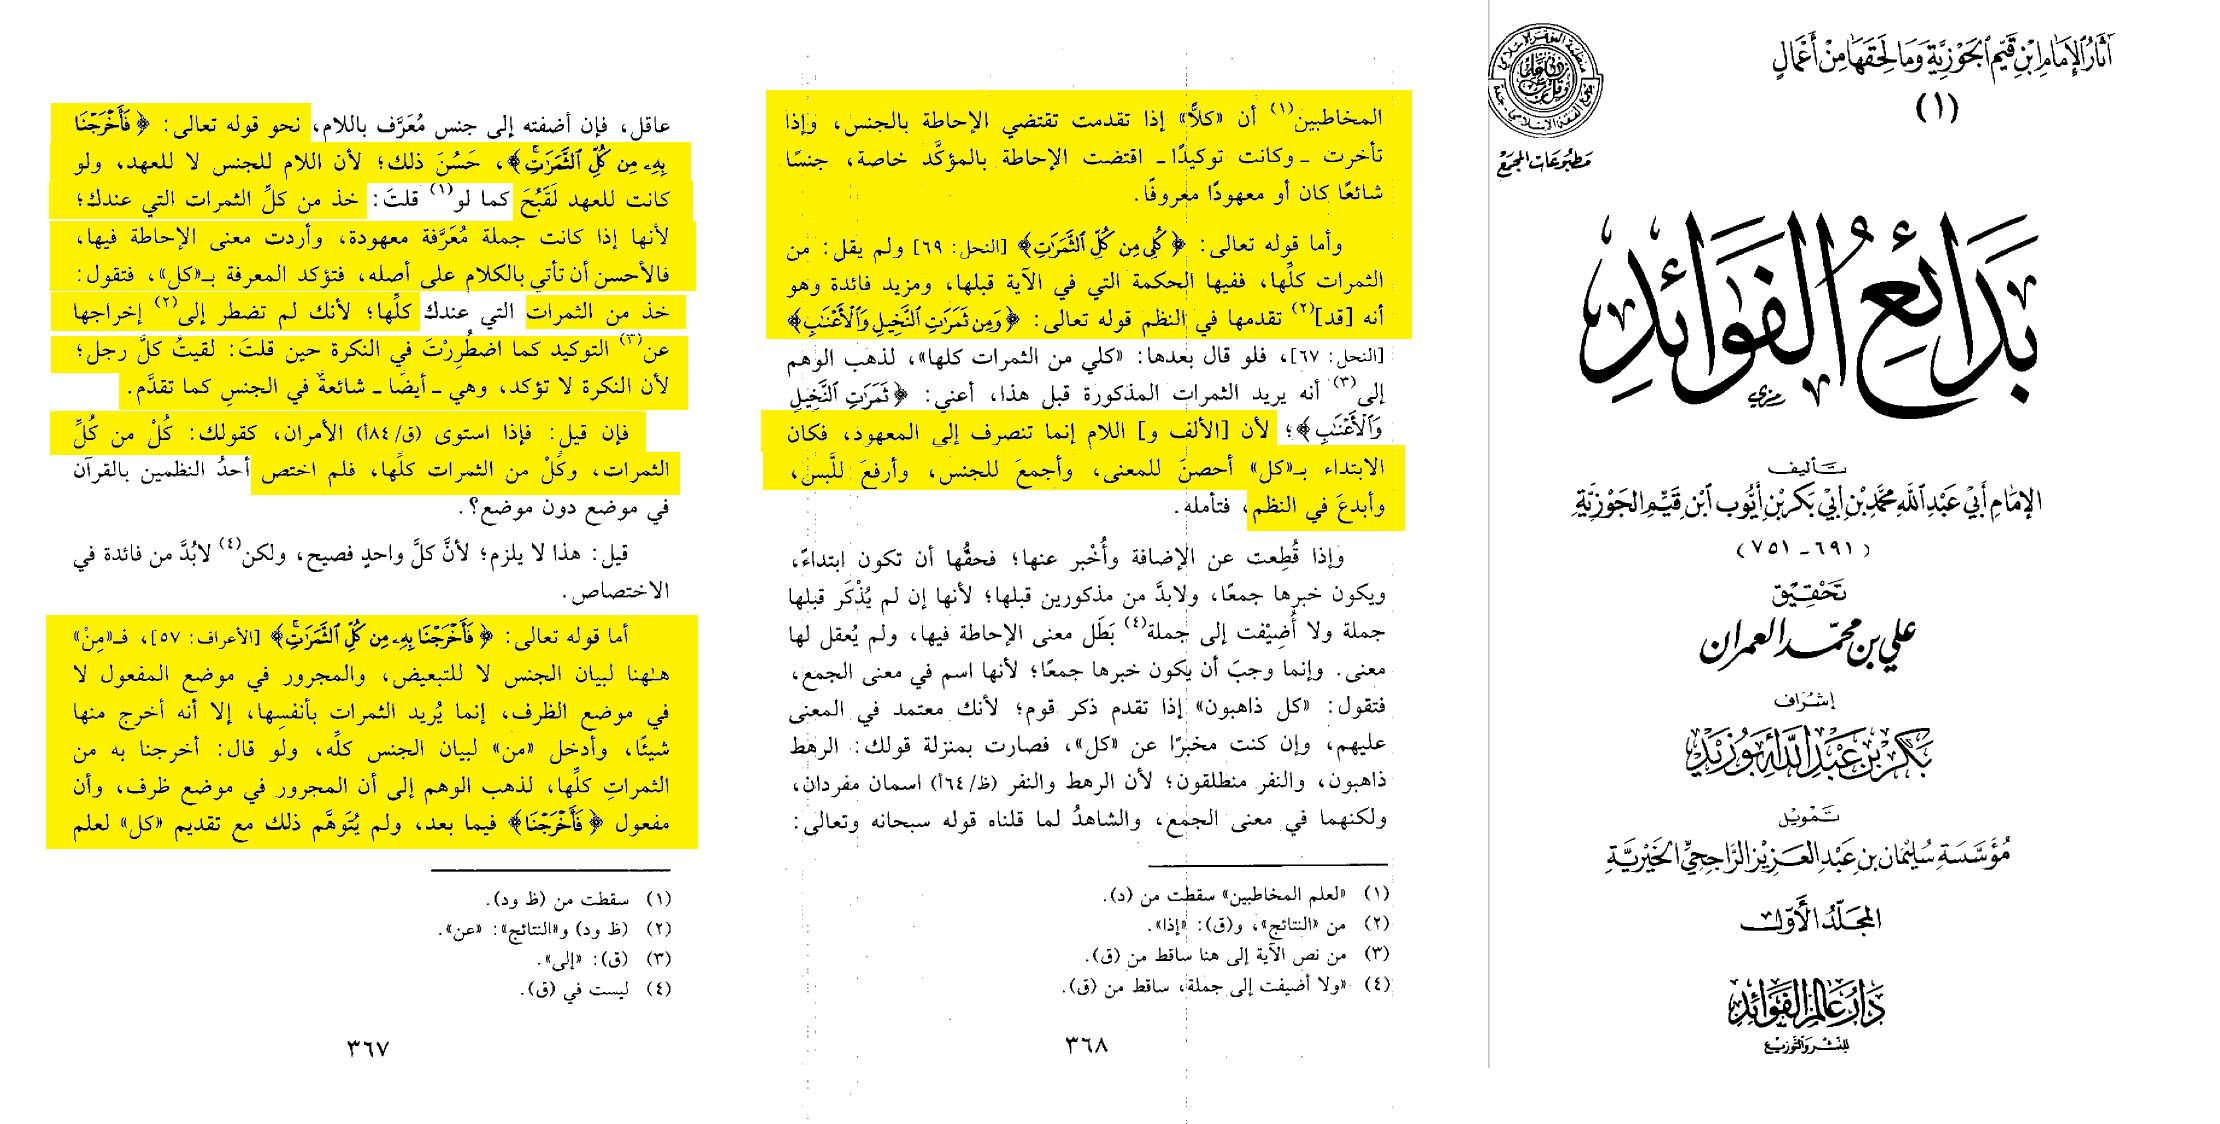 آثار الإمام ابن قيم الجوزية وما لحقها من أعمال
(١)
مطبوعات المجمع
بدائع الفوائد
تأليف
الإمام أبي عبد الله محمد بن أبي بكر بن أيوب ابن قيم الجوزية
(٦٩١ - ٧٥١)
تحقيق
علي بن محمد العمران
إشراف
بكر بن عبد الله أبو زيد
تمويل
مؤسسة سليمان بن عبد العزيز الراجحي الخيرية
المجلد الأول
دار عالم الفوائد
للنشر والتوزيع
عاقل، فإن أضفته إلى جنس مُعَرَّف باللام، نحو قوله تعالى: ﴿فَأَخْرَجْنَا
بِهِۦ مِن كُلِّ ٱلثَّمَرَٰتِۚ﴾، حَسُنَ ذلك؛ لأن اللام للجنس لا للعهد، ولو
كانت للعهد لَقَبُحَ كما لو(١) قلتَ: خذ من كلِّ الثمرات التي عندك؛
لأنها إذا كانت جملة مُعَرَّفة معهودة، وأردت معنى الإحاطة فيها،
فالأحسن أن تأتي بالكلام على أصله، فتؤكد المعرفة بـ«كل»، فتقول:
خذ من الثمرات التي عندك كلِّها؛ لأنك لم تضطر إلى(٢) إخراجها
عن(٣) التوكيد كما اضطُرِرْتَ في النكرة حين قلتَ: لقيتُ كلَّ رجل؛
لأن النكرة لا تؤكد، وهي ـ أيضًا ـ شائعةٌ في الجنسِ كما تقدَّم.
فإن قيل: فإذا استوى (ق/٨٤أ) الأمران، كقولك: كُلْ من كُلِّ
الثمرات، وكُلْ من الثمرات كلِّها، فلم اختص أحدُ النظمين بالقرآن
في موضع دون موضع؟.
قيل: هذا لا يلزم؛ لأنَّ كلَّ واحدٍ فصيح، ولكن(٤) لابُدَّ من فائدة في
الاختصاص.
أما قوله تعالى: ﴿فَأَخْرَجْنَا بِهِۦ مِن كُلِّ ٱلثَّمَرَٰتِۚ﴾ [الأعراف: ٥٧]، فـ«مِنْ»
هـٰهنا لبيان الجنس لا للتبعيض، والمجرور في موضع المفعول لا
في موضع الظرف، إنما يُريد الثمرات بأنفسِها، إلا أنه أخرج منها
شيئًا، وأدخل «من» لبيان الجنس كلِّه، ولو قال: أخرجنا به من
الثمراتِ كلِّها، لذهب الوهم إلى أن المجرور في موضع ظرف، وأن
مفعول ﴿فَأَخْرَجْنَا﴾ فيما بعد، ولم يُتَوهَّم ذلك مع تقديم «كل» لعلم
(١) سقطت من (ظ ود).
(٢) (ظ ود) و«النتائج»: «عن».
(٣) (ق): «إلى».
(٤) ليست في (ق).
٣٦٧
المخاطبين(١) أن «كلًّا» إذا تقدمت تقتضي الإحاطة بالجنس، وإذا
تأخرت ـ وكانت توكيدًا ـ اقتضت الإحاطة بالمؤكَّد خاصة، جنسًا
شائعًا كان أو معهودًا معروفًا.
وأما قوله تعالى: ﴿كُلِي مِن كُلِّ ٱلثَّمَرَٰتِ﴾ [النحل: ٦٩] ولم يقل: من
الثمرات كلِّها، ففيها الحكمة التي في الآية قبلها، ومزيد فائدة وهو
أنه [قد](٢) تقدمها في النظم قوله تعالى: ﴿وَمِن ثَمَرَٰتِ ٱلنَّخِيلِ وَٱلْأَعْنَٰبِ﴾
[النحل: ٦٧]، فلو قال بعدها: «كلي من الثمرات كلها»، لذهب الوهم
إلى(٣) أنه يريد الثمرات المذكورة قبل هذا، أعني: ﴿ثَمَرَٰتِ ٱلنَّخِيلِ
وَٱلْأَعْنَٰبِ﴾؛ لأن [الألف و] اللام إنما تنصرف إلى المعهود، فكان
الابتداء بـ«كل» أحصنَ للمعنى، وأجمعَ للجنس، وأرفعَ للَّبس،
وأبدعَ في النظم، فتأمله.
وإذا قُطِعت عن الإضافة وأُخْبر عنها؛ فحقُّها أن تكون ابتداءً،
ويكون خبرها جمعًا، ولابدَّ من مذكورين قبلها؛ لأنها إن لم يُذْكَر قبلها
جملة ولا أُضِيْفت إلى جملة(٤) بَطَل معنى الإحاطة فيها، ولم يُعقل لها
معنى. وإنما وجبَ أن يكون خبرها جمعًا؛ لأنها اسم في معنى الجمع،
فتقول: «كل ذاهبون» إذا تقدم ذكر قوم؛ لأنك معتمد في المعنى
عليهم، وإن كنت مخبرًا عن «كل»، فصارت بمنزلة قولك: الرهط
ذاهبون، والنفر منطلقون؛ لأن الرهط والنفر (ظ/٦٤أ) اسمان مفردان،
ولكنهما في معنى الجمع، والشاهدُ لما قلناه قوله سبحانه وتعالى:
(١) «لعلم المخاطبين» سقطت من (د).
(٢) من «النتائج»، و(ق): «إذا».
(٣) من نص الآية إلى هنا ساقط من (ق).
(٤) «ولا أضيفت إلى جملة، ساقط من (ق).
٣٦٨